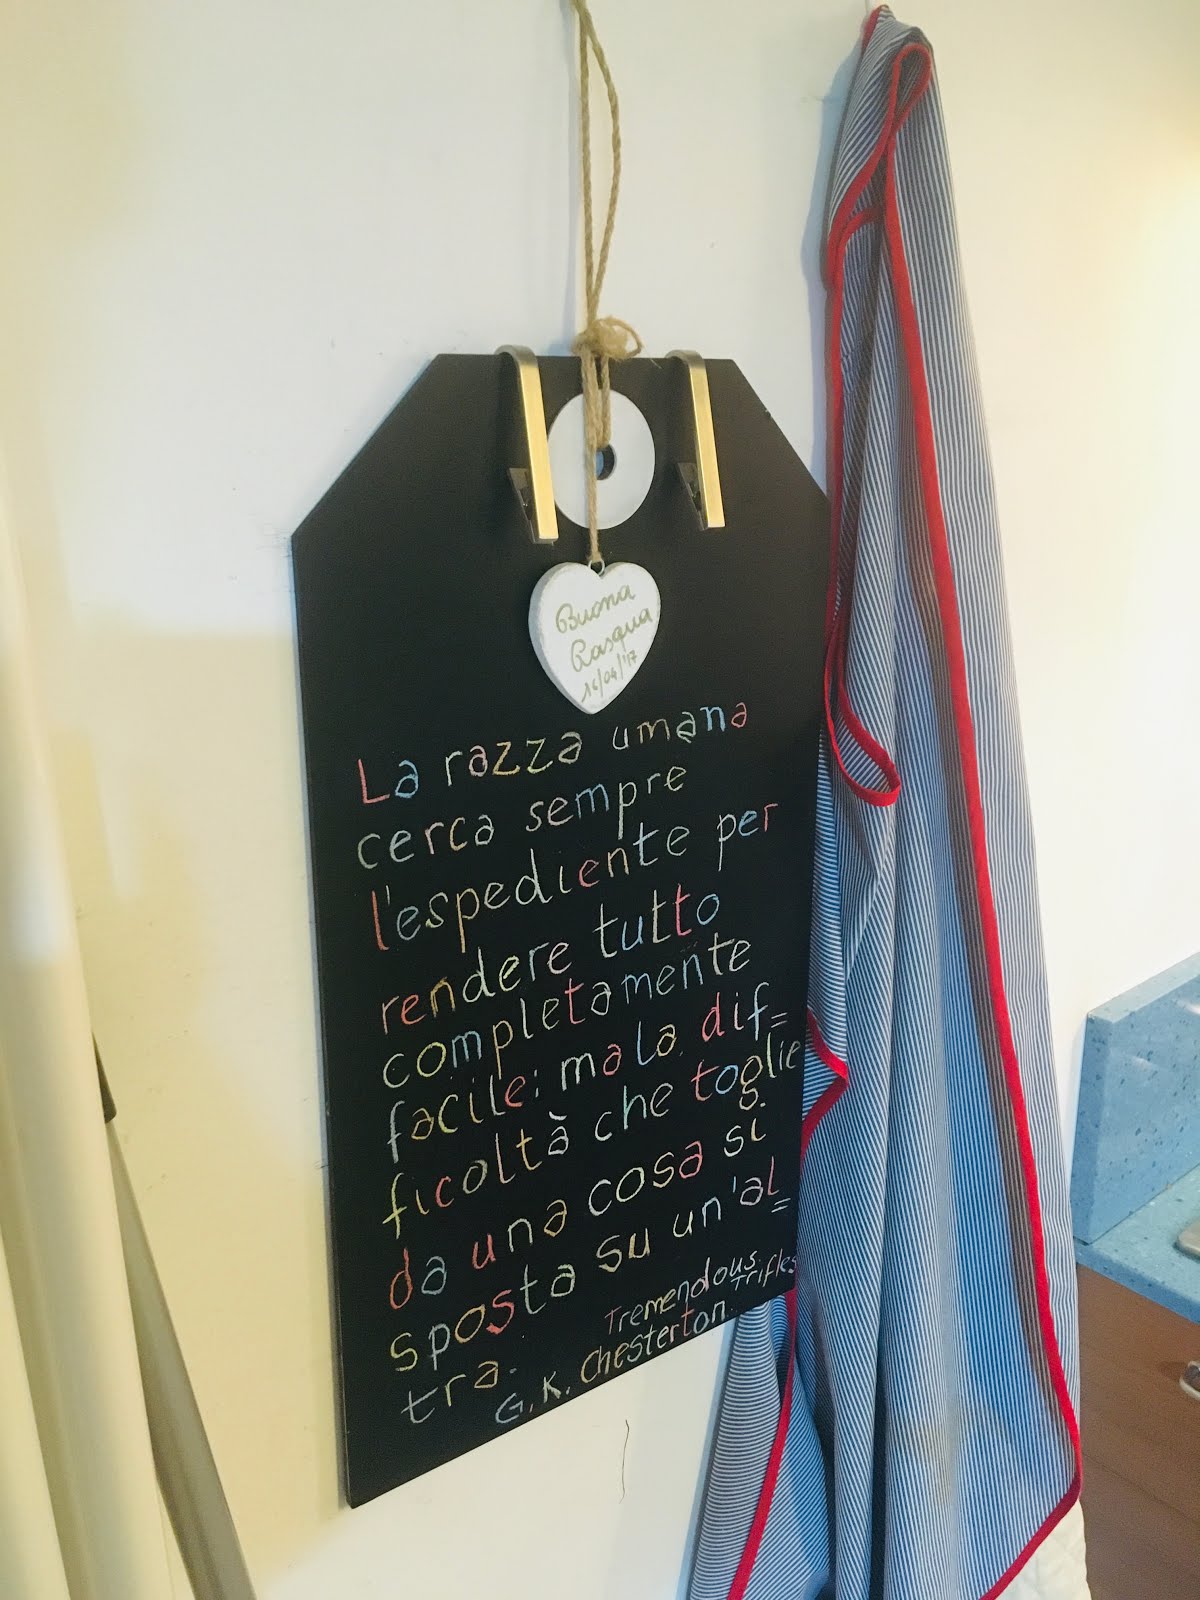 Buona
Pasqua
16/04/'17
La razza umana
cerca sempre
l'espediente per
rendere tutto
completamente
facile; ma la dif=
ficoltà che toglie
da una cosa si
sposta su un'al=
tra.
Tremendous Trifles
G. K. Chesterton